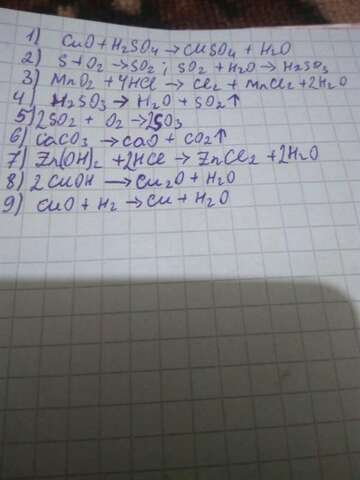 1) CuO + H₂SO₄ → CuSO₄ + H₂O
2) S + O₂ → SO₂ ; SO₂ + H₂O → H₂SO₃
3) MnO₂ + 4HCl → Cl₂ + MnCl₂ + 2H₂O
4) H₂SO₃ → H₂O + SO₂↑
5) 2SO₂ + O₂ → 2SO₃
6) CaCO₃ → CaO + CO₂↑
7) Zn(OH)₂ + 2HCl → ZnCl₂ + 2H₂O
8) 2CuOH → Cu₂O + H₂O
9) CuO + H₂ → Cu + H₂O